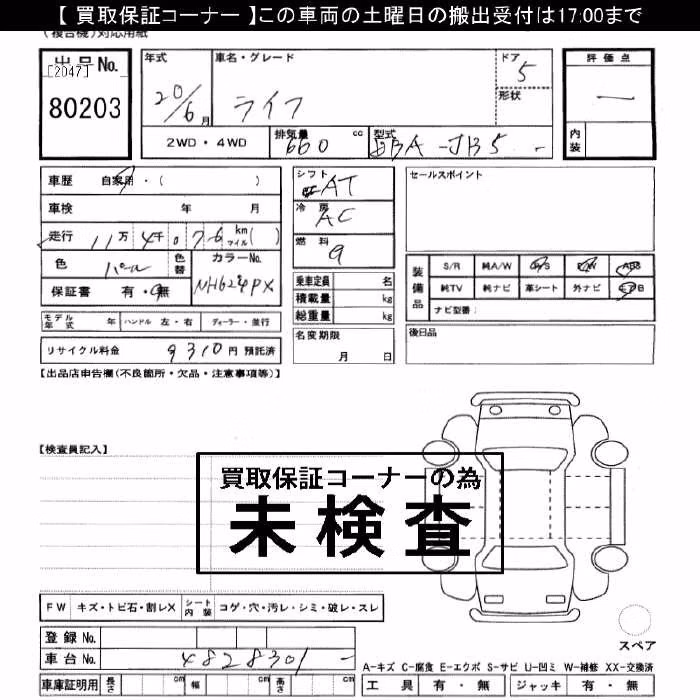 【 買取保証コーナー 】この車両の土曜日の搬出受付は17:00まで
(複合機)対応用紙
出品No.
[2047]
80203
年式
20/6月
車名・グレード
ライフ
ドア
5
形状
評価点
一
内装
2WD・4WD
排気量 660 cc
型式 DBA-JB5
車歴 自家用・( )
車検 年 月
走行 11万4千076 km マイル( )
色 パール 色替
カラーNo.
NH624PX
保証書 有・無
モデル年式 年 ハンドル 左・右 ディーラー・並行
リサイクル料金 9310円 預託済
シフト AT
冷房 AC
燃料 9
乗車定員 名
積載量 kg
総重量 kg
名変期限
月 日
セールスポイント
装備品
S/R M/A/W P/S P/W ABS
純TV 純ナビ 革シート 外ナビ エアB
ナビ型番:
後日品
【出品店申告欄(不良箇所・欠品・注意事項等)】
【検査員記入】
買取保証コーナーの為
未検査
FW キズ・トビ石・割レX シート内装 コゲ・穴・汚レ・シミ・破レ・スレ
登録No.
車台No. 4828301
車庫証明用 長さ cm 幅 cm 高さ cm
スペア
A-キズ C-腐食 E-エクボ S-サビ U-凹ミ W-補修 XX-交換済
工具 有・無 ジャッキ 有・無